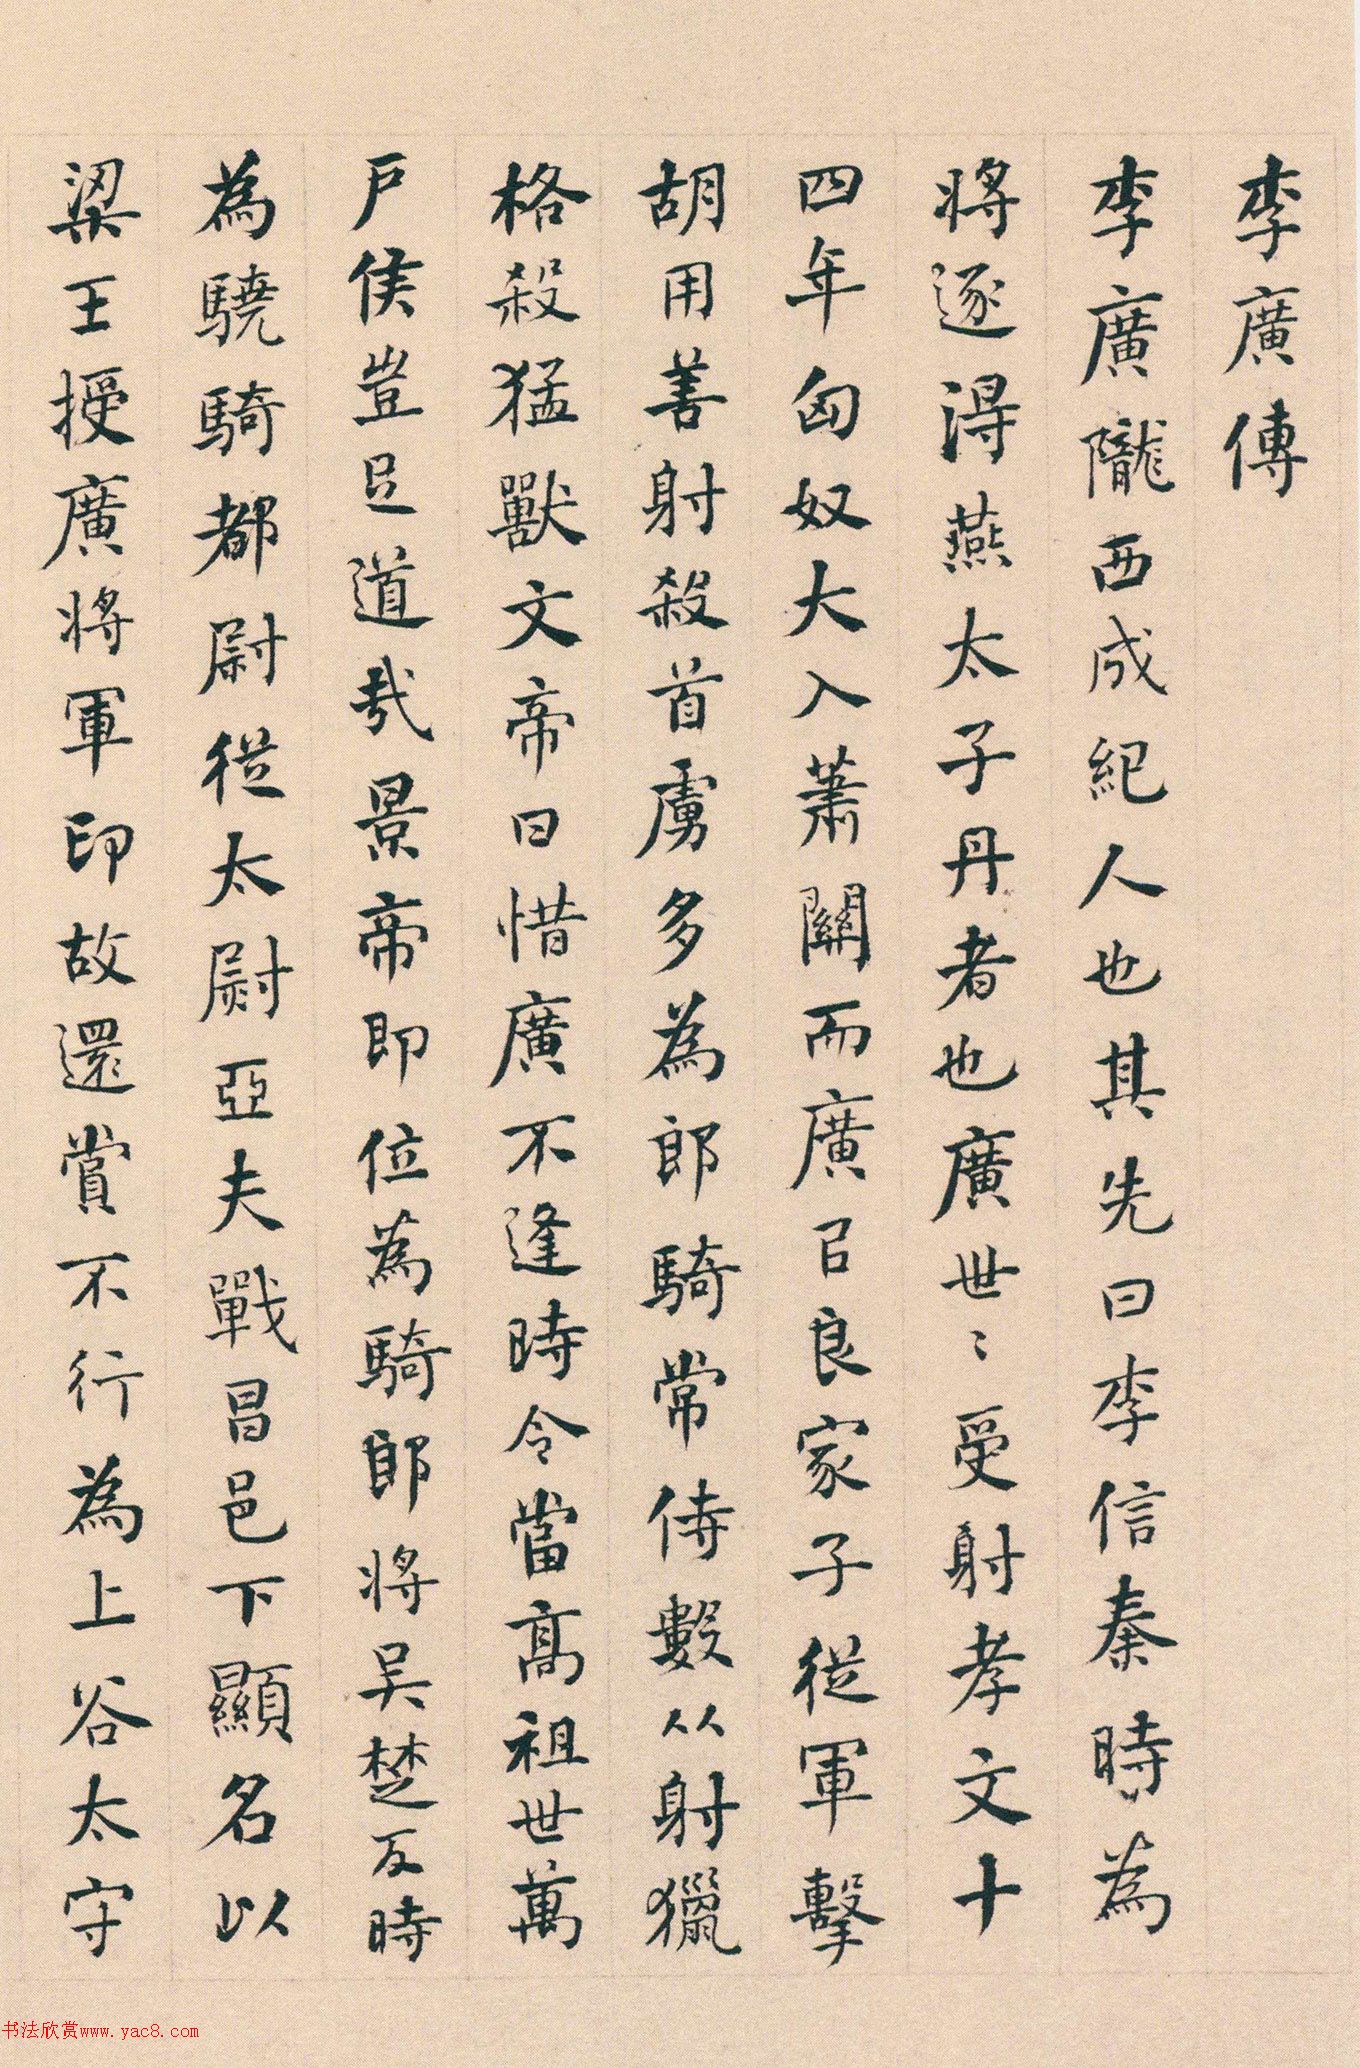 李廣傳
李廣隴西成紀人也其先曰李信秦時為
將逐得燕太子丹者也廣世〻受射孝文十
四年匈奴大入蕭關而廣㠯良家子從軍擊
胡用善射殺首虜多為郎騎常侍數从射獵
格殺猛獸文帝曰惜廣不逢時令當高祖世萬
戶侯豈足道哉景帝即位為騎郎將吳楚反時
為驍騎都尉從太尉亞夫戰昌邑下顯名以
梁王授廣將軍印故還賞不行為上谷太守
书法欣赏www.yac8.com